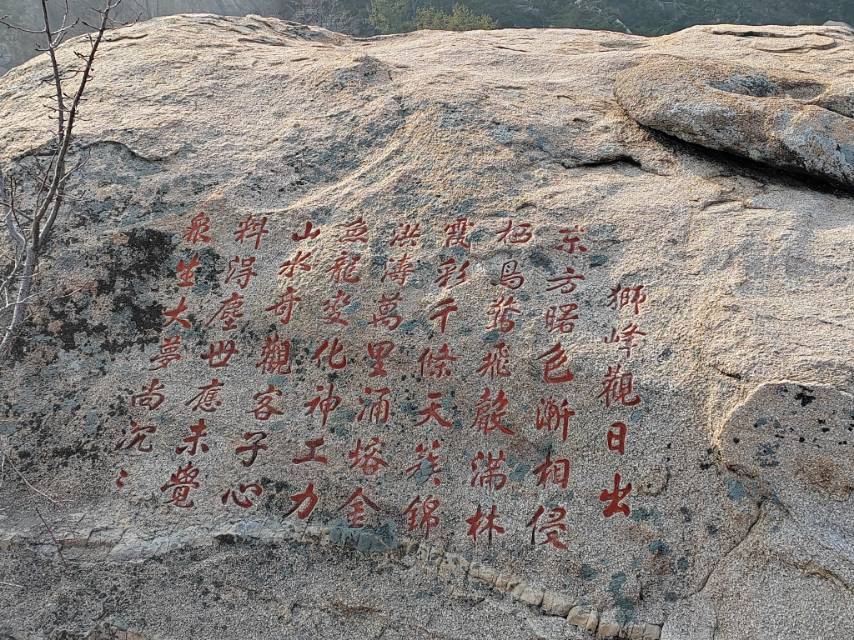 獅峰觀日出
东方曙色漸相侵
栖鳥驚飛聲滿林
霞彩千條天簇錦
洪濤萬里涌熔金
魚龍變化神工力
山水奇觀客子心
料得塵世應未覺
衆生大夢尚沉々